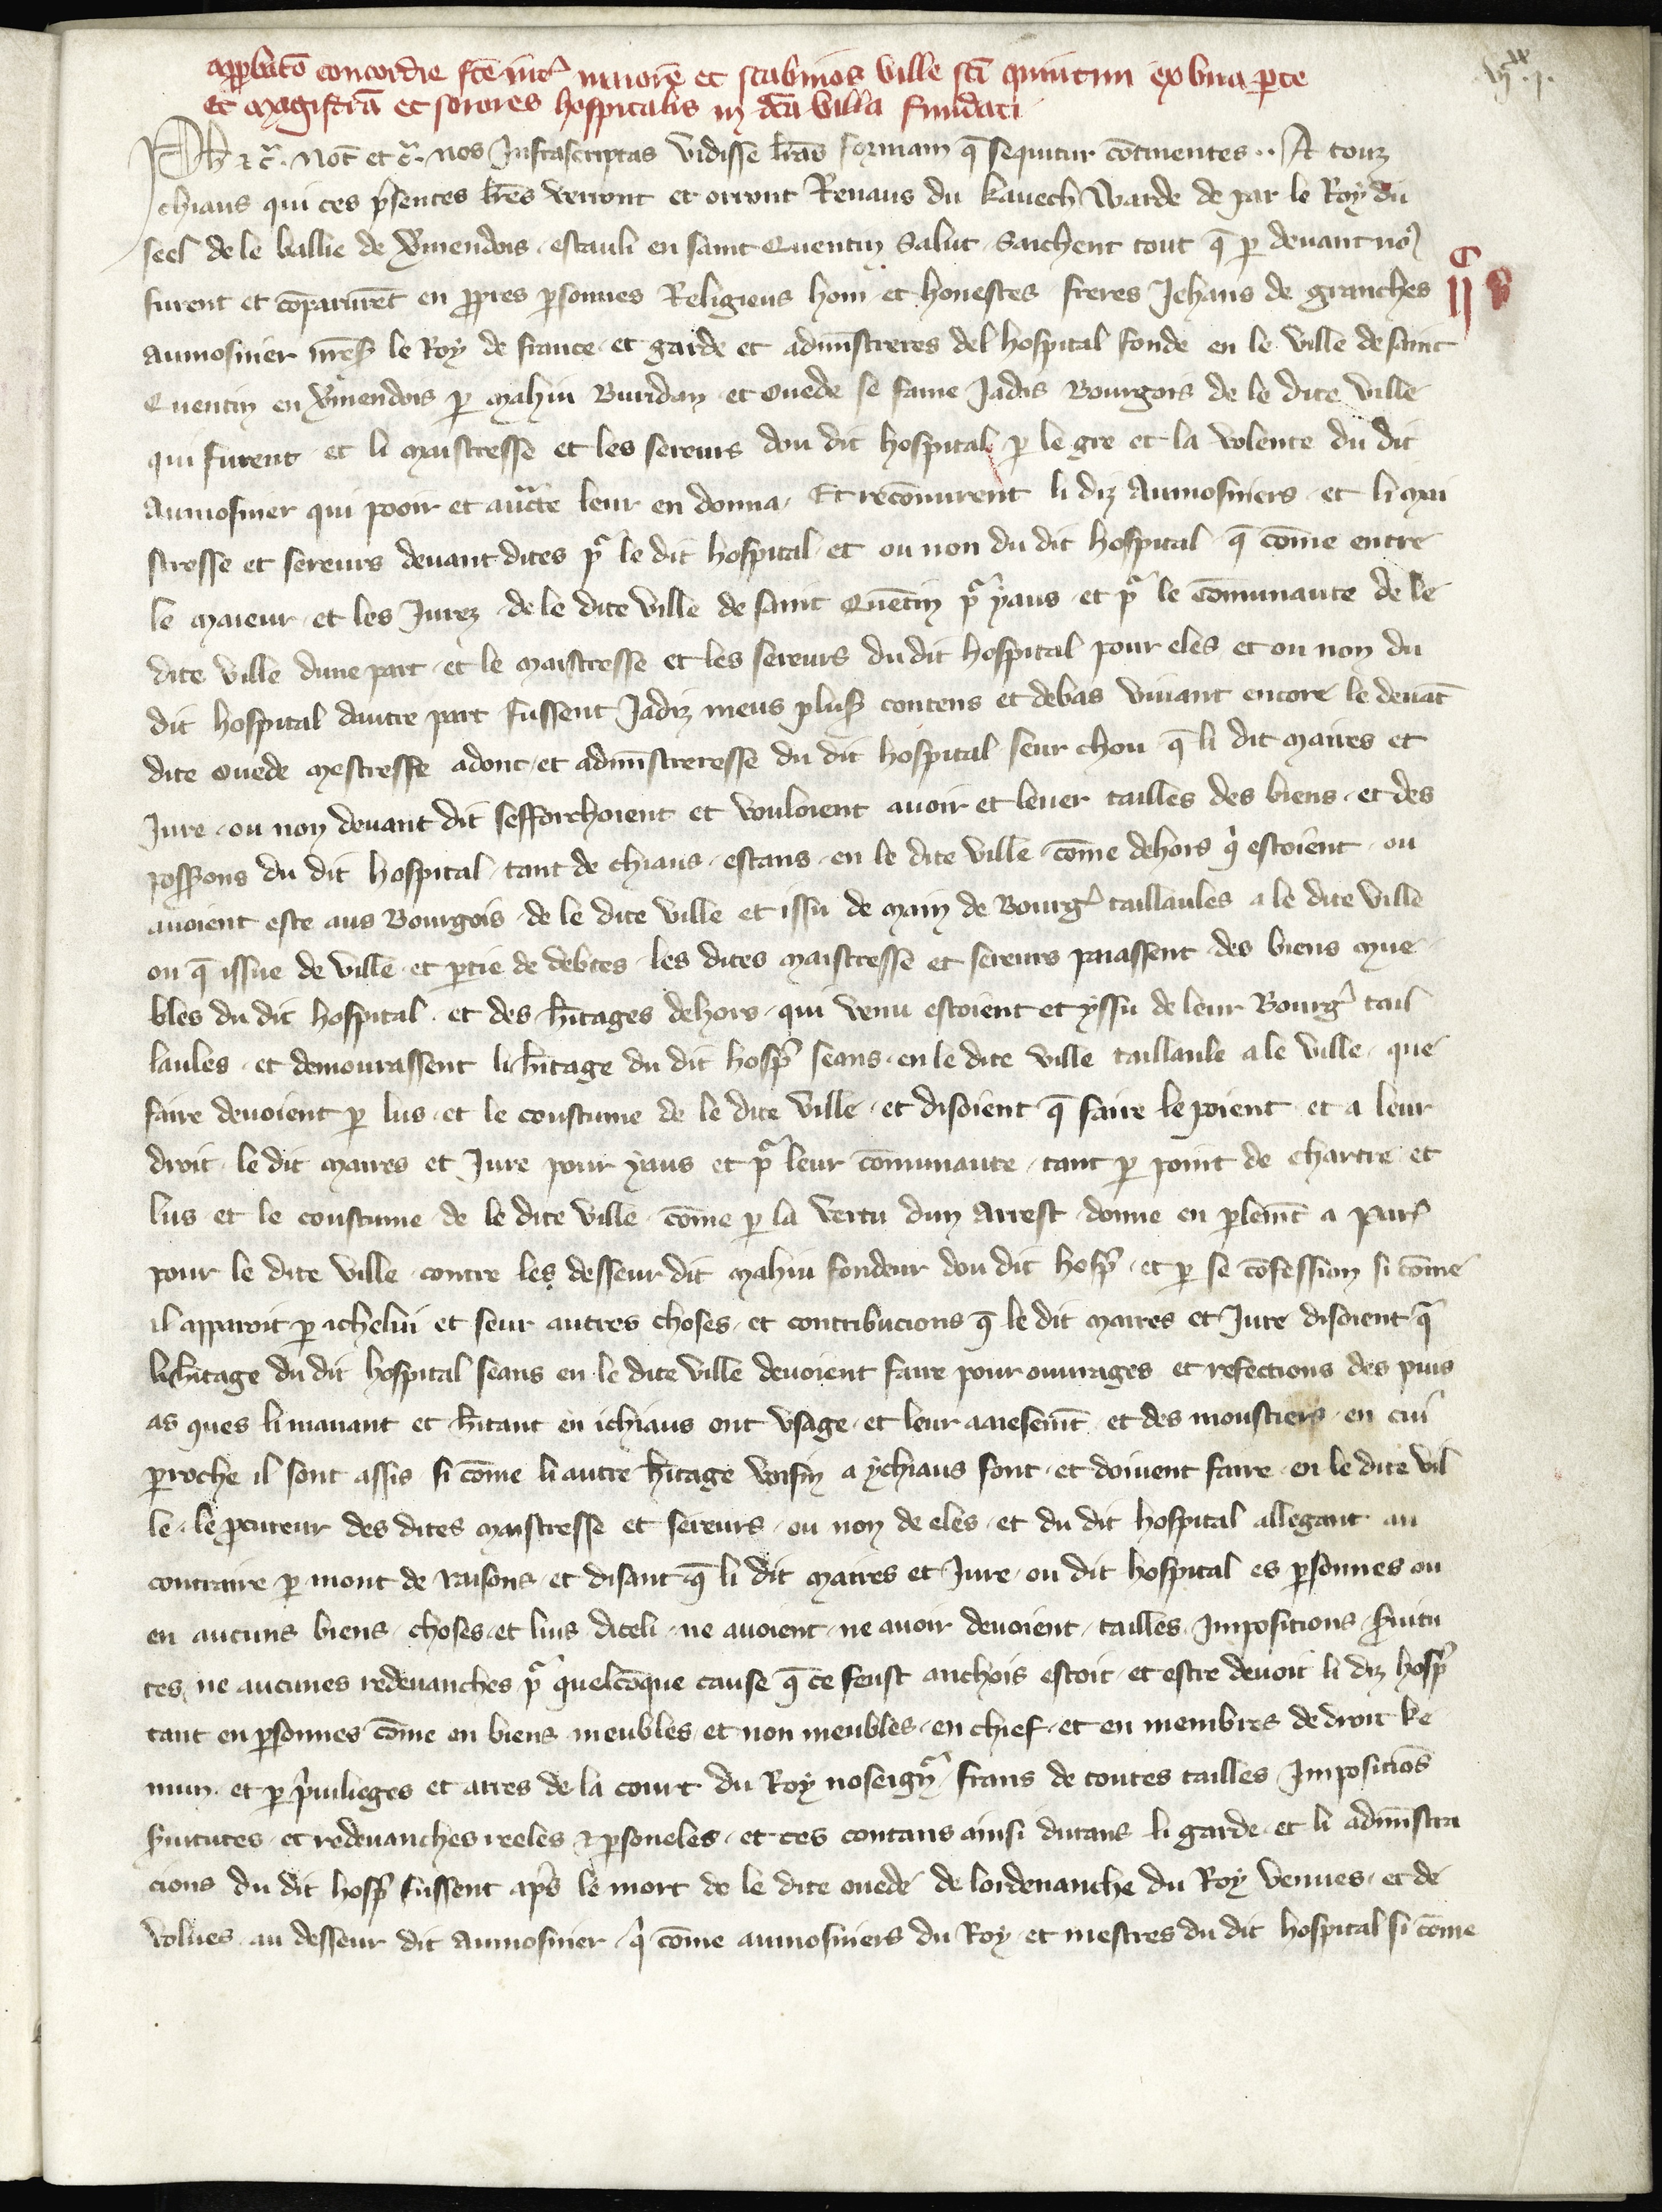 approbatō concordie fcē int̄ maiorē et scabinos ville sc̄i quintini ex vna p̄te
et magistrā et sorores hospitalis in dc̄a villa fundati
Ph̄ ⁊ c̄. Not̄ et c̄. nos Infrascriptas vidisse lr̄as formam q̄ sequitur cōtinentes .. A touz
chiaus qui ces p̄sentes lr̄es verront et orront Renaus du kauech Warde de par le Roy du
seel de le ballie de v̄mendois . estauli en saint Quentin Salut . Saichent tout q̄ p̄ deuant no⁹
furent et cōparurēt en p̄pres p̄sonnes Religieus hom et honestes freres Jehans de granches
aumosnier nr̄e sʳ le Roy de france . et garde et admīstreres del hospital fonde en le ville de saint
Quentin en v̄mendois p̄ mahiu Buridan et ouede se fame Jadis Bourgois de le dite ville
qui furent . et li maistresse et les sereurs dou dit hospital p̄ le gre et la volente du dit
aumosnier qui pooir et auc̄te leur en donna . Et recōnurent li diz Aumosniers . et li mai
stresse et sereurs deuant dites pʳ le dit hospital . et ou non du dit hospital q̄ cōme entre
le maieur . et les Jurez . de le dite ville de saint Quētin pʳ yaus . et pʳ le cōmunaute de le
dite ville dune part . et le maistresse et les sereurs du dit hospital pour eles et ou non du
dit hospital dautre part fussent Jadiz meus pluss̄ contens et debas viuant encore le deuāt
dite ouede mestresse adont . et admīstreresse du dit hospital seur chou q̄ li dit maires et
Jure . ou non deuant dit sefforchoient et vouloient auoir et leuer tailles des biens . et des
poss̄ions du dit hospital . tant de chiaus . estans . en le dite ville . cōme dehors q̄ estoient . ou
auoient este aus Bourgois . de le dite ville et issu de main de Bourḡ taillaules a le dite ville
ou q̄ issue de ville . et p̄tie de debtes . les dites maistresse et sereurs paiassent des biens mue
bles du dit hospital . et des h̄itages dehors . qui venu estoient et yssu de leur Bourḡ tail
laules . et demourassent li h̄itage du dit hosp̄ seans . en le dite ville taillaule a le ville . que
faire deuoient p̄ lus . et le coustume de le dite ville . et disoient q̄ faire le poient . et a leur
droit . le dit maires et Jure pour yaus et pʳ leur cōmunaute . tant p̄ point de chartre et
lus . et le coustume de le dite ville . cōme p̄ la vertu dun Arrest . donne en p̄lemēt a par̄
pour le dite ville . contre les desseur dit mahiu fondeur dou dit hosp̄ . et p̄ se cōfession si cōme
il apparoit p̄ ichelui et seur autres choses . et contribucions q̄ le dit maires et Jure disoient q̄
li h̄itage du dit hospital seans en le dite ville deuoient faire pour ouurages et refections des puis
as ques li manant et h̄itant en ichiaus ont vsage . et leur aaisemēt . et des moustiers . en cui
p̄roche il sont assis si cōme li autre h̄itage voisin a ychiaus font . et doiuent faire . en le dite vil
le . le p̄cureur des dites maistresse et sereurs . ou non de eles . et du dit hospital allegant au
contraire p̄ mont de raisons . et disant q̄ li dit maires et Jure . ou dit hospital es p̄sonnes ou
en aucuns biens . choses . et lius diceli . ne auoient . ne auoir deuoient . tailles . Impositions . s̄uitu
tes . ne aucunes redeuanches pʳ quelcōque cause q̄ ce feust anchois estoit . et estre deuoit li diz hosp̄
tant en p̄sonnes cōme en biens meubles . et non meubles . en chief . et en membres de droit ke
mun . et p̄ p̄uilieges et arres de la court du Roy noseigʳ frans de toutes tailles Imposiciōs
s̄uitutes . et redeuanches reeles ⁊ p̄soneles . et ces contans ainsi durans li garde . et li admīstra
cions du dit hosp̄ fussent ap̄s le mort de le dite ouede de lordenanche du Roy venues . et de
volues . au desseur dit Aumosnier . q̄ cōme aumosniers du Roy . et mestres du dit hospital si cōme